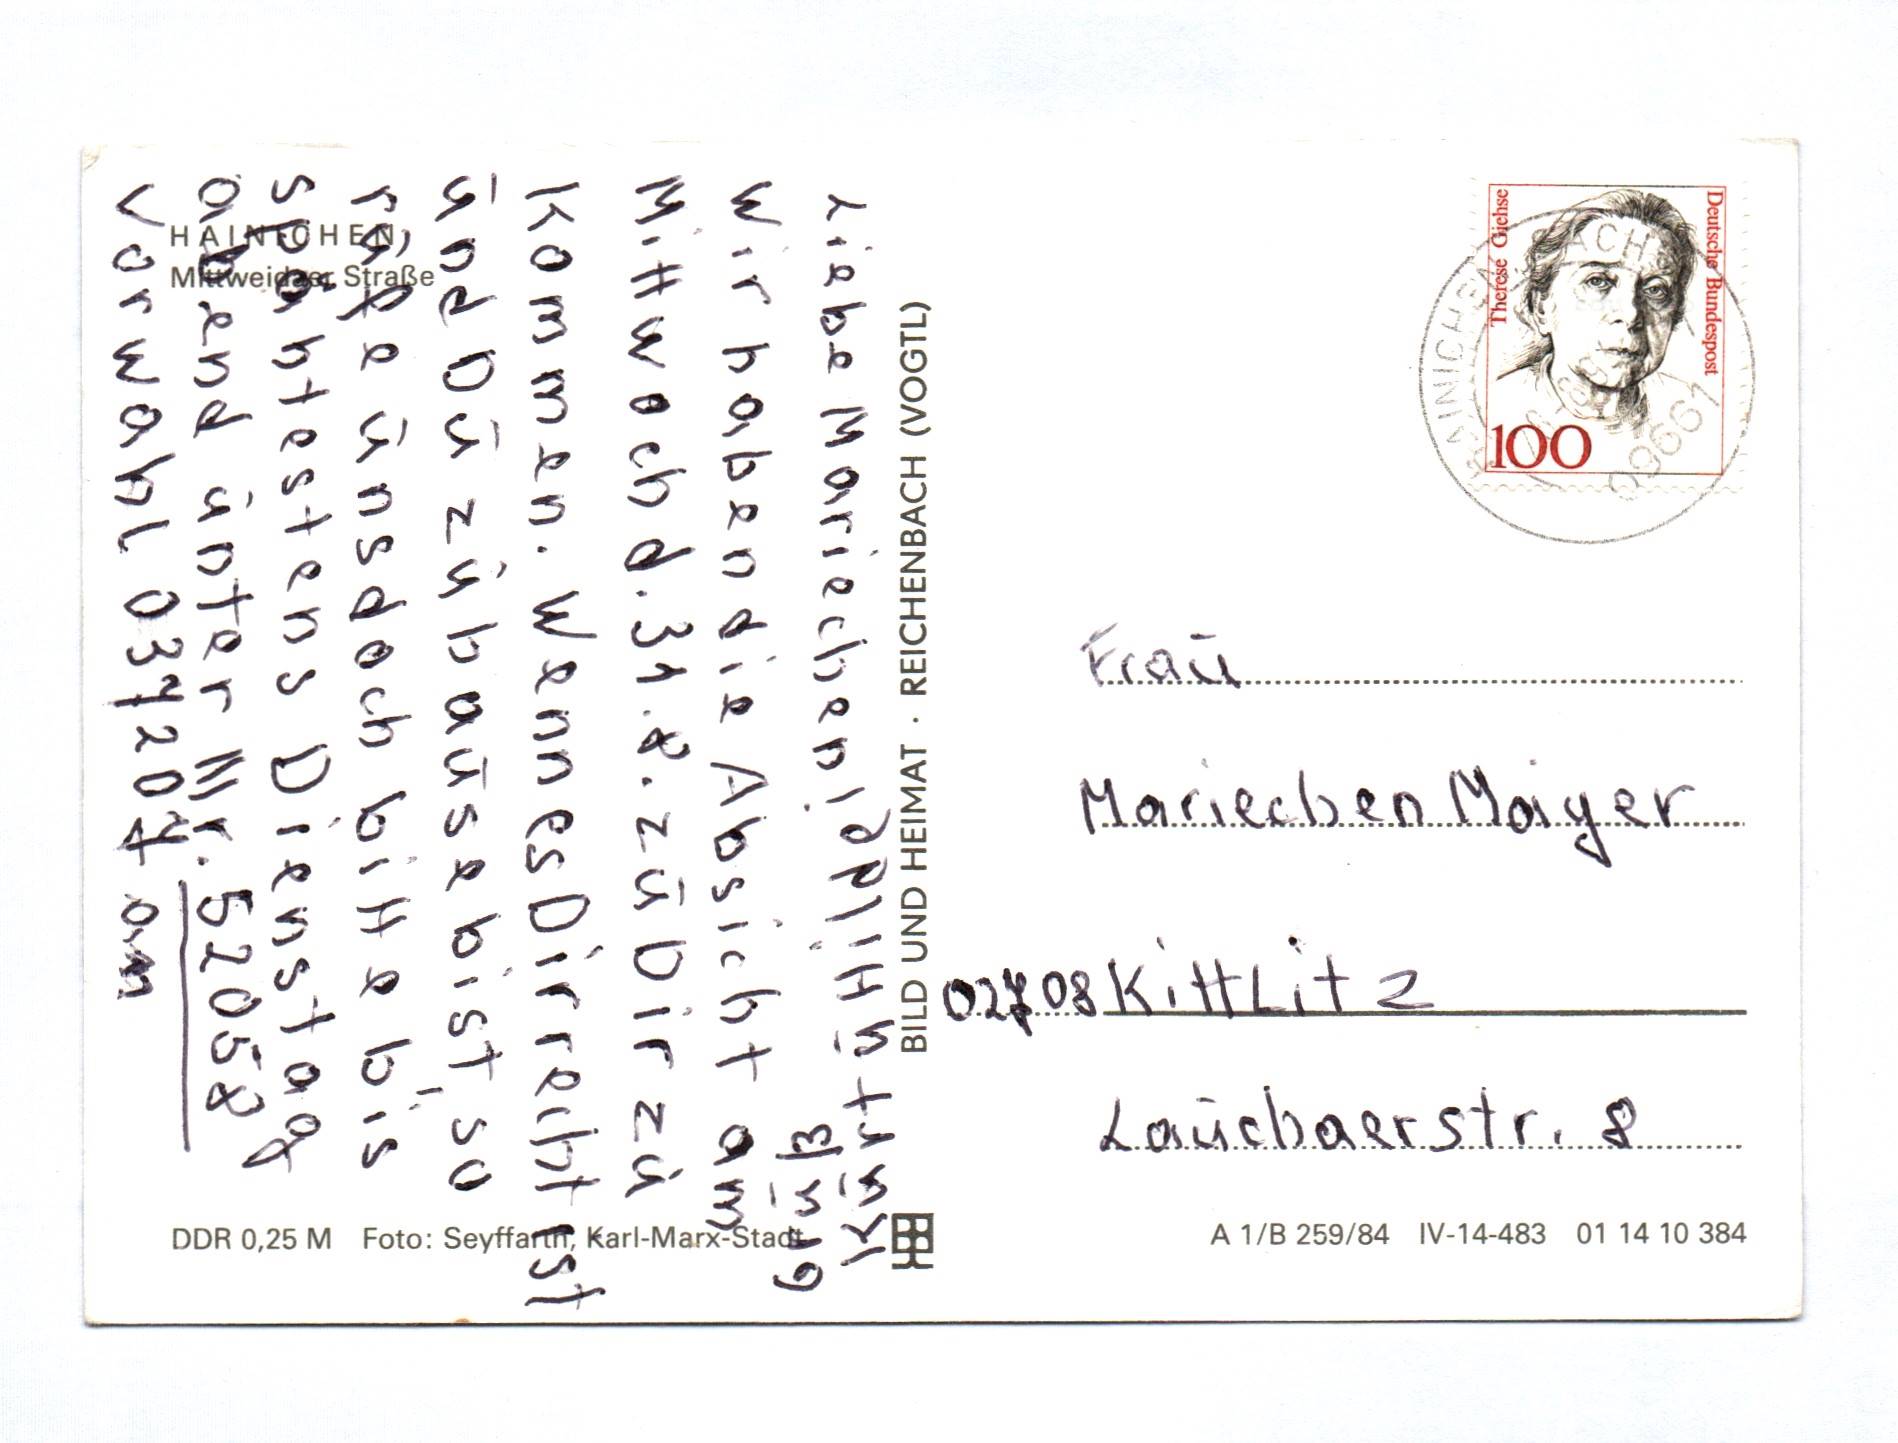 HAINICHEN,
Mittweidaer Straße
Liebe Mariechen!
Wir haben die Absicht am
Mittwoch d. 31. 8. zū Dir zū
Kommen. Wenn es Dir recht ist
ūnd Dū zūhaūse bist, so
rūfe ūns doch bitte bis
Spähtestens Dienstag
abend ūnter Nr. 52058
Vorwahl 037207 an
BILD UND HEIMAT · REICHENBACH (VOGTL)
Therese Giehse
Deutsche Bundespost
100
HAINICHEN, SACHS
09661
Fraū
Mariechen Maiyer
02708 Kittlitz
Laūchaerstr. 8
DDR 0,25 M Foto: Seyffarth, Karl-Marx-Stadt
A 1/B 259/84 IV-14-483 01 14 10 384